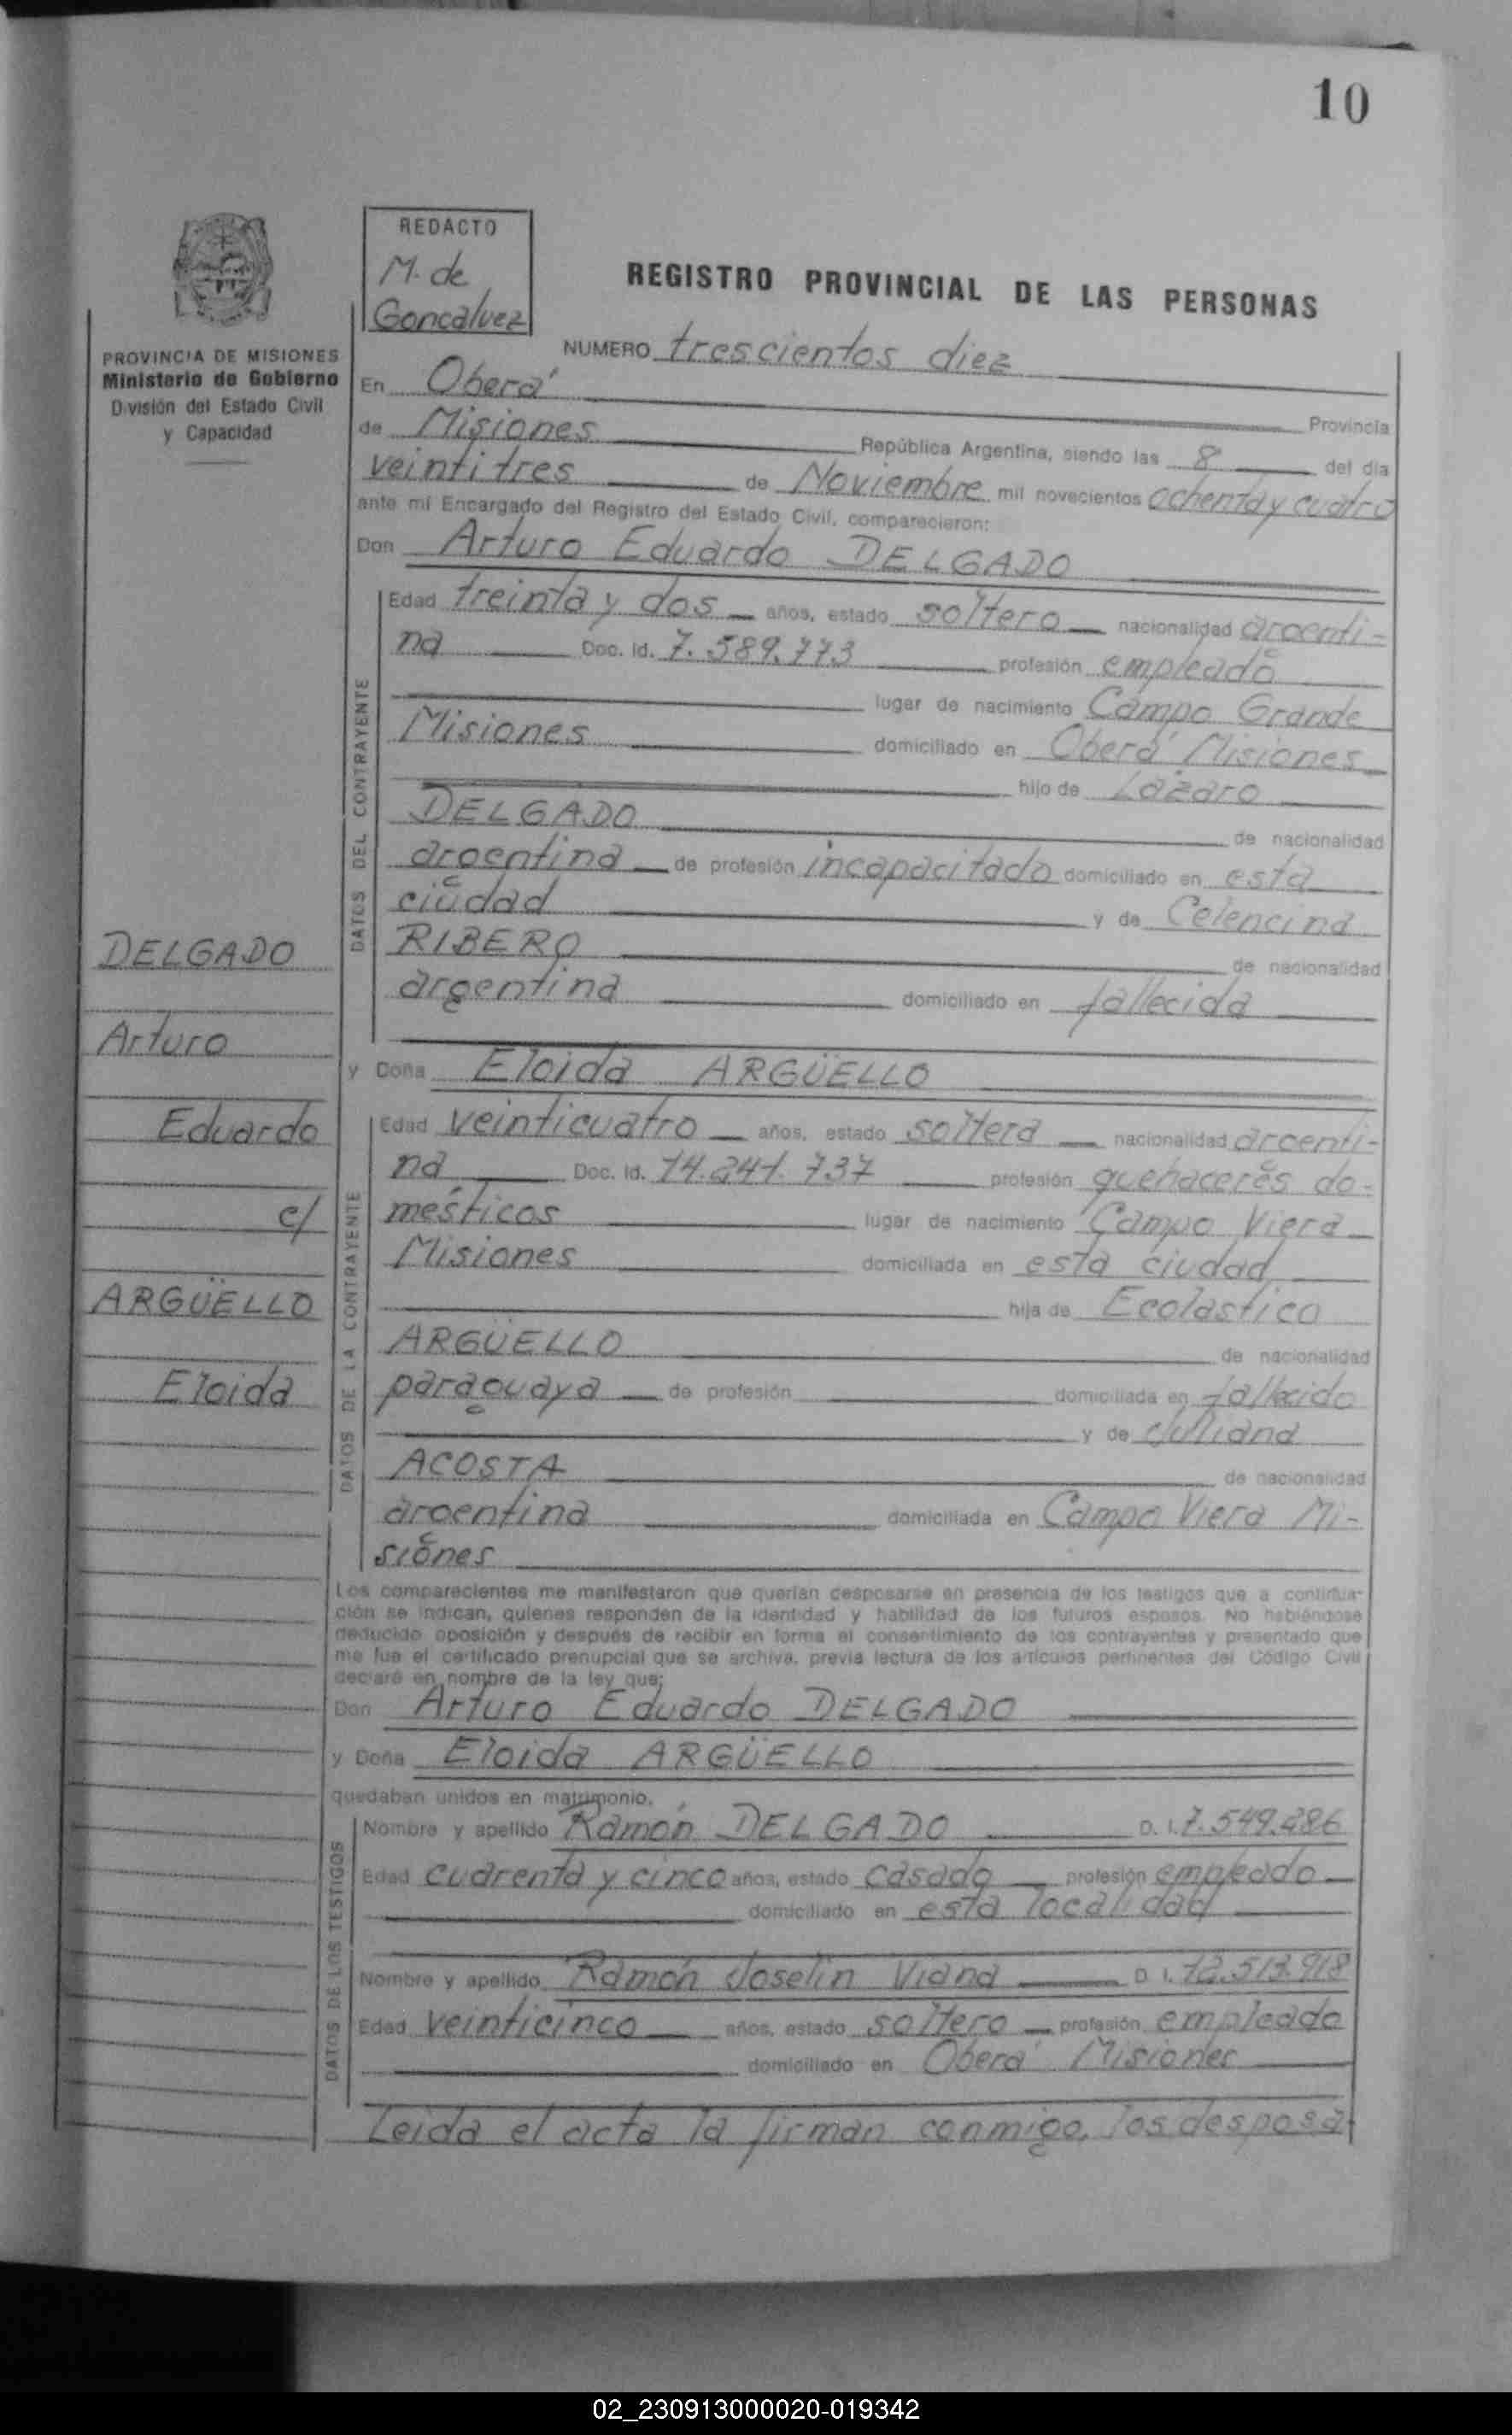 10
REDACTO
M. de
Goncalvez
REGISTRO PROVINCIAL DE LAS PERSONAS
PROVINCIA DE MISIONES
Ministerio de Gobierno
División del Estado Civil
y Capacidad
NUMERO trescientos diez
En Oberá Provincia
de Misiones República Argentina, siendo las 8 del día
veintitres de Noviembre mil novecientos ochenta y cuatro
ante mí Encargado del Registro del Estado Civil, comparecieron:
Don Arturo Eduardo DELGADO
DATOS DEL CONTRAYENTE
Edad treinta y dos años, estado soltero nacionalidad argenti-
na Doc. Id. 7.589.773 profesión empleado
lugar de nacimiento Campo Grande
Misiones domiciliado en Oberá Misiones
hijo de Lázaro
DELGADO de nacionalidad
argentina de profesión incapacitado domiciliado en esta
ciudad y de Celencina
RIBERO de nacionalidad
argentina domiciliado en fallecida
y Doña Eloida ARGÜELLO
DATOS DE LA CONTRAYENTE
Edad veinticuatro años, estado soltera nacionalidad argenti-
na Doc. Id. 14.241.737 profesión quehaceres do-
mésticos lugar de nacimiento Campo Viera
Misiones domiciliada en esta ciudad
hija de Ecolastico
ARGÜELLO de nacionalidad
paraguaya de profesión domiciliada en fallecido
y de Juliana
ACOSTA de nacionalidad
argentina domiciliada en Campo Viera Mi-
siones
Los comparecientes me manifestaron que querían desposarse en presencia de los testigos que a continua-
ción se indican, quienes responden de la identidad y habilidad de los futuros esposos. No habiéndose
deducido oposición y después de recibir en forma el consentimiento de los contrayentes y presentado que
me fue el certificado prenupcial que se archiva, previa lectura de los artículos pertinentes del Código Civil
declaré en nombre de la ley que:
Don Arturo Eduardo DELGADO
y Doña Eloida ARGÜELLO
quedaban unidos en matrimonio.
DATOS DE LOS TESTIGOS
Nombre y apellido Ramón DELGADO D. I. 7.549.286
Edad cuarenta y cinco años, estado casado profesión empleado
domiciliado en esta localidad
Nombre y apellido Ramón Joselin Viana D. I. 12.513.918
Edad veinticinco años, estado soltero profesión empleado
domiciliado en Oberá Misiones
Leída el acta la firman conmigo, los desposa
DELGADO
Arturo
Eduardo
c/
ARGÜELLO
Eloida
02_230913000020-019342